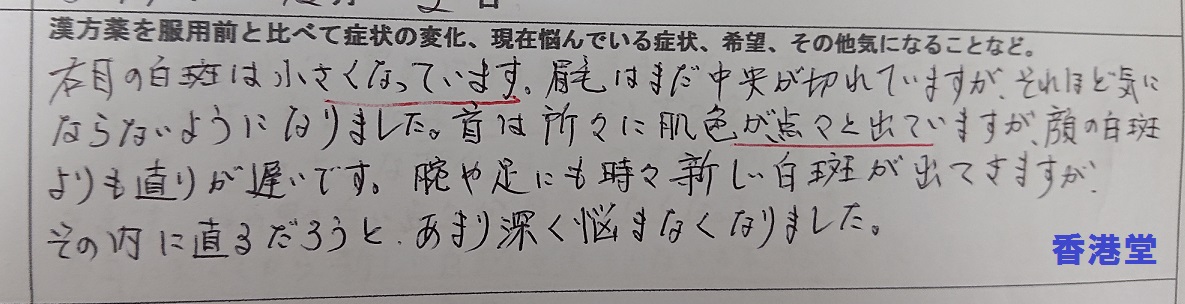 漢方薬を服用前と比べて症状の変化、現在悩んでいる症状、希望、その他気になることなど。
右目の白斑は小さくなっています。眉毛はまだ中央が切れていますが、それほど気に
ならないようになりました。首は所々に肌色が点々と出ていますが、顔の白斑
よりも直りが遅いです。腕や足にも時々新しい白斑が出てきますが、
その内に直るだろうと、あまり深く悩まなくなりました。
香港堂